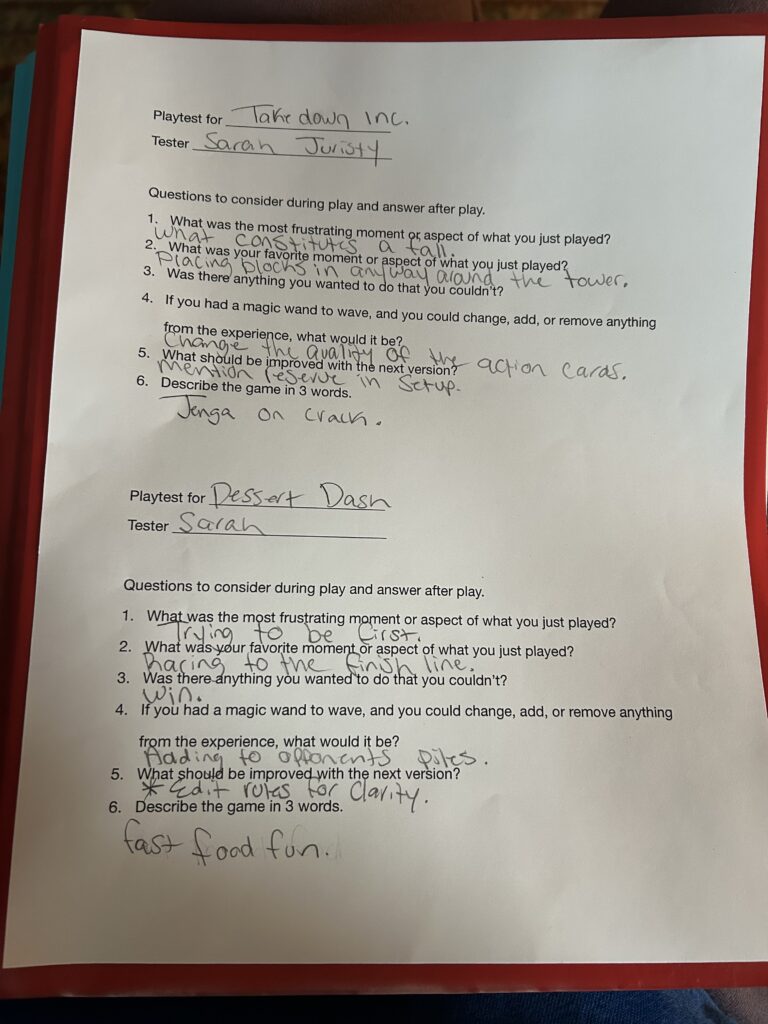 Playtest for Take down Inc.
Tester Sarah Juristy
Questions to consider during play and answer after play.
1. What was the most frustrating moment or aspect of what you just played?
What constitutes a fall.
2. What was your favorite moment or aspect of what you just played?
Placing blocks in anyway around the tower.
3. Was there anything you wanted to do that you couldn't?
4. If you had a magic wand to wave, and you could change, add, or remove anything
from the experience, what would it be?
Change the quality of the action cards.
5. What should be improved with the next version?
mention reserve in setup.
6. Describe the game in 3 words.
Jenga on crack.
Playtest for Dessert Dash
Tester Sarah
Questions to consider during play and answer after play.
1. What was the most frustrating moment or aspect of what you just played?
Trying to be first.
2. What was your favorite moment or aspect of what you just played?
Racing to the finish line.
3. Was there anything you wanted to do that you couldn't?
Win.
4. If you had a magic wand to wave, and you could change, add, or remove anything
from the experience, what would it be?
Adding to opponents piles.
5. What should be improved with the next version?
* Edit rules for Clarity.
6. Describe the game in 3 words.
fast food fun.